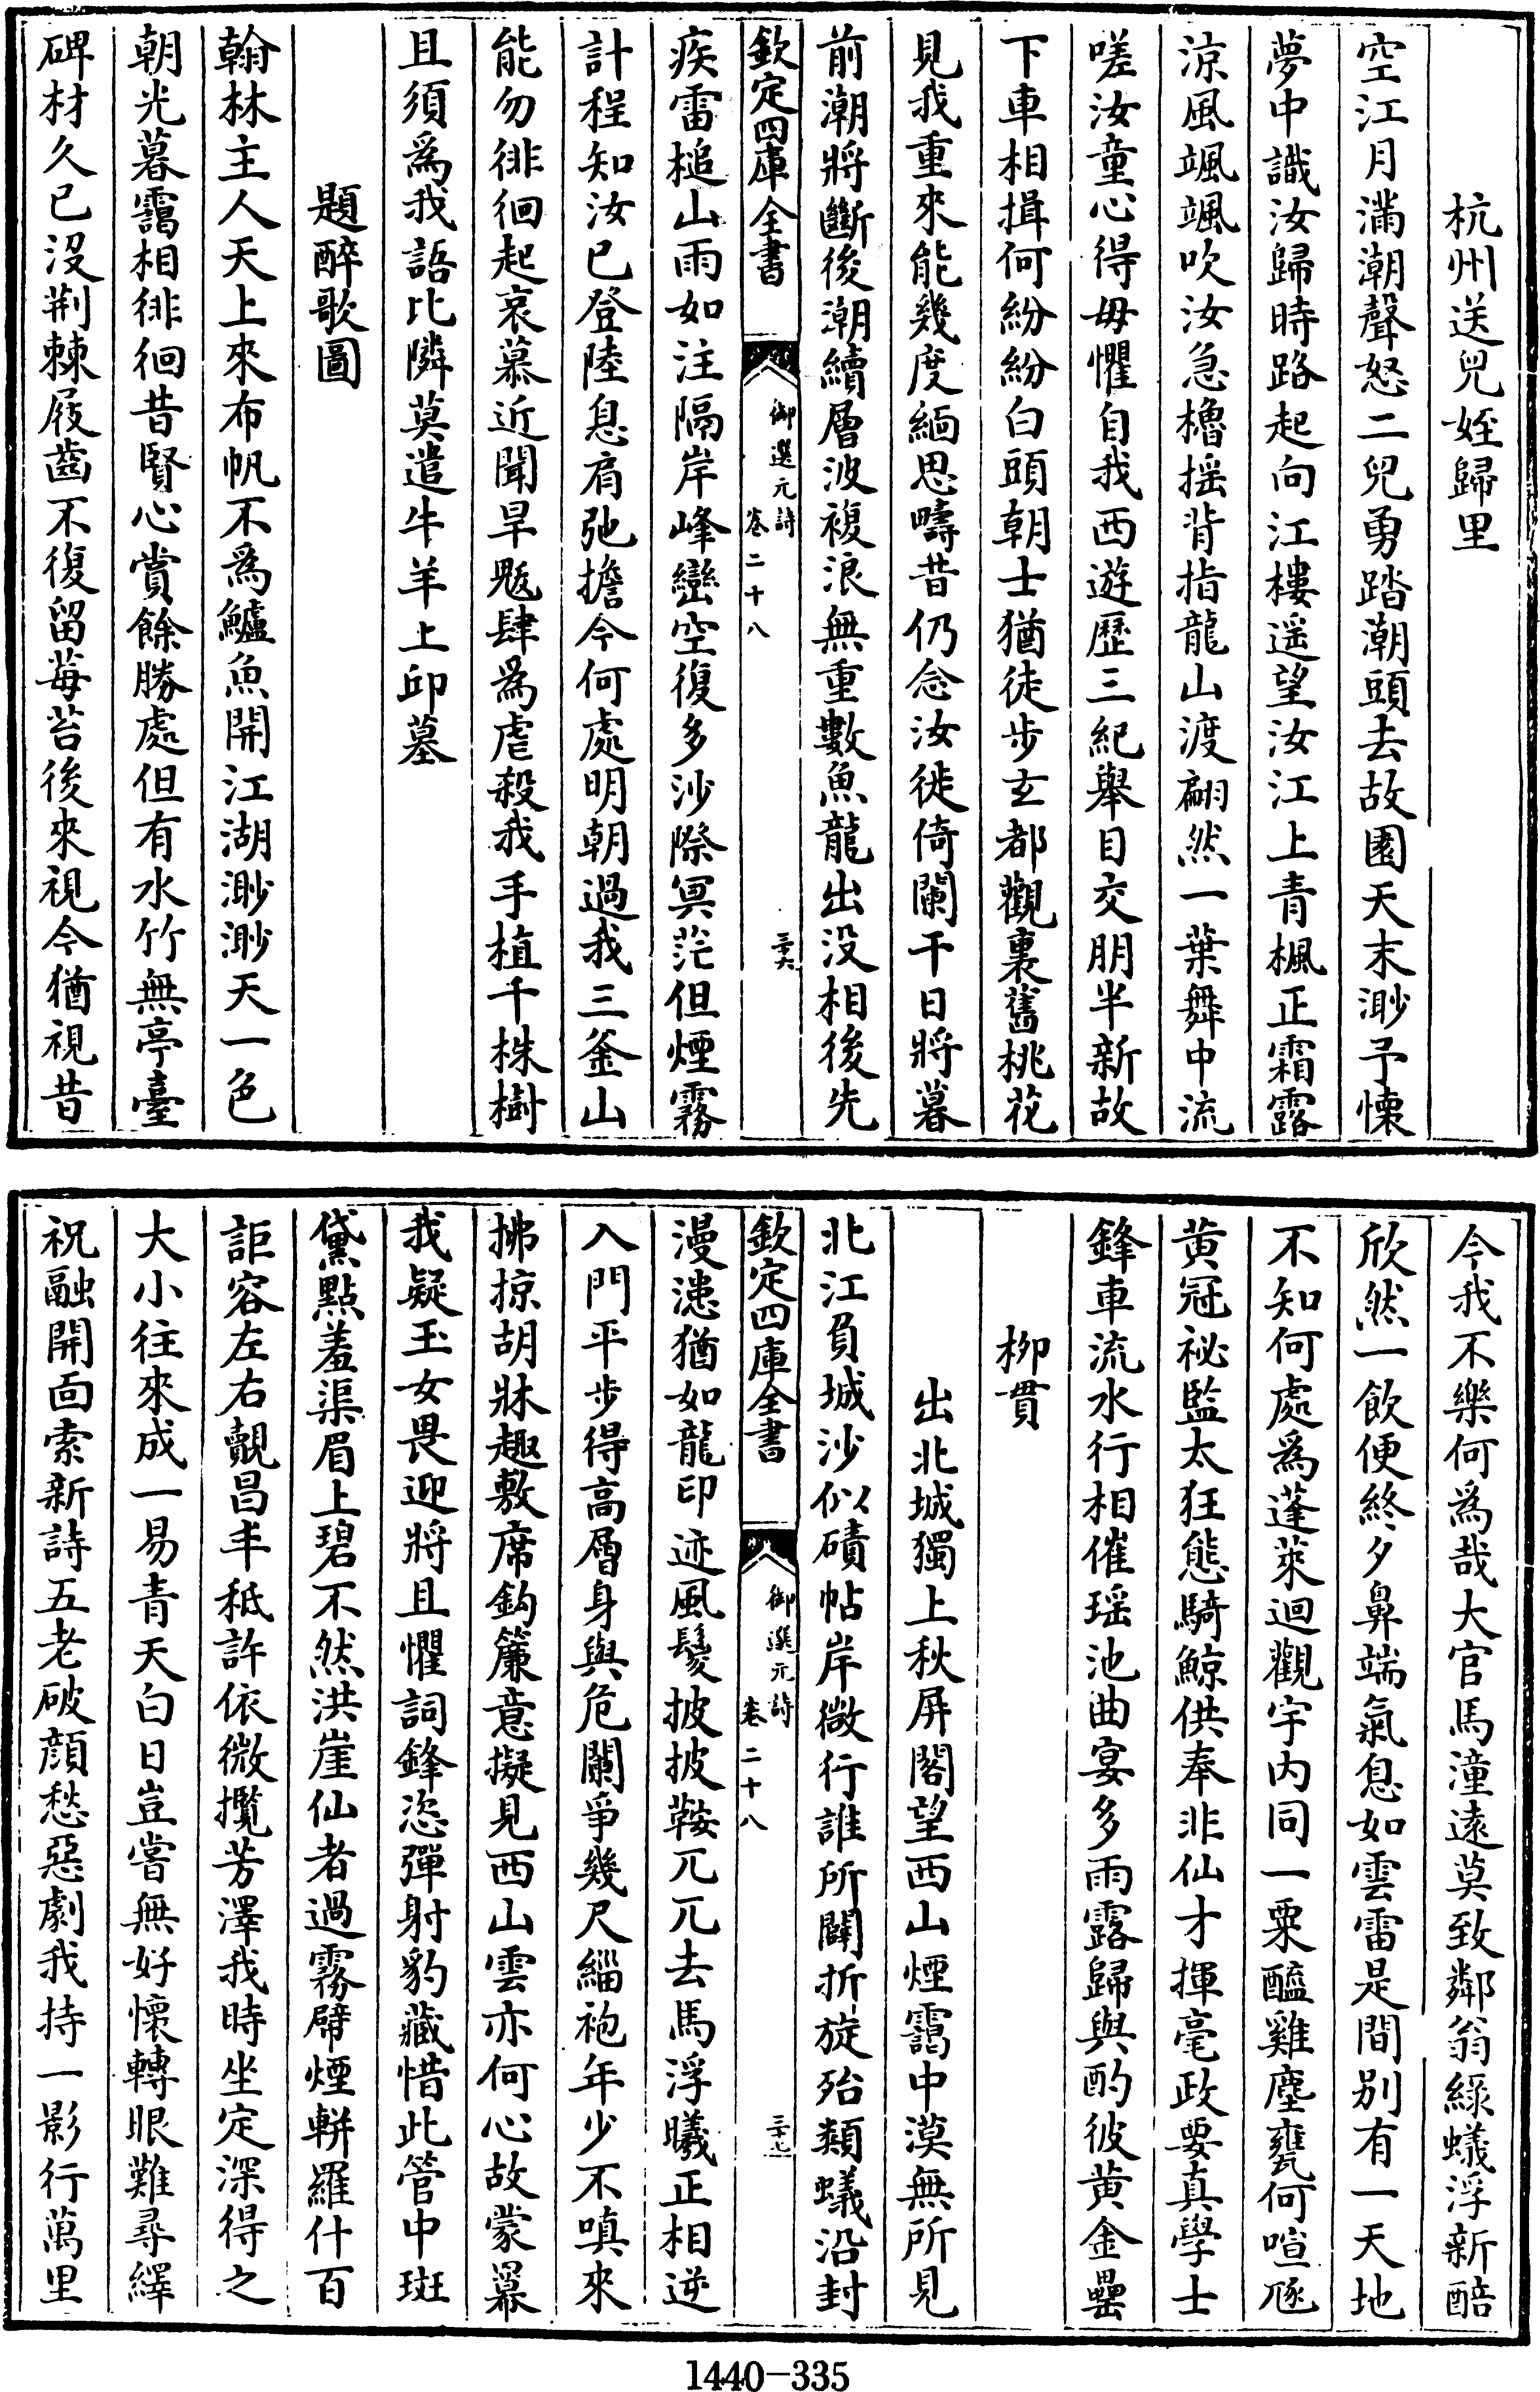 杭州送兒姪歸里
空江月滿潮聲怒二兒勇踏潮頭去故園天末渺予懷
夢中識汝歸時路起向江樓遥望汝江上青楓正霜露
涼風颯颯吹汝急櫓揺背指龍山渡翩然一葉舞中流
嗟汝童心得毋懼自我西遊歷三紀舉目交朋半新故
下車相揖何紛紛白頭朝士猶徒步玄都觀裏舊桃花
見我重來能幾度緬思疇昔仍念汝徙倚闌干日將暮
前潮將斷後潮續層波複浪無重數魚龍出没相後先
欽定四庫全書
御選元詩
卷二十八
三十六
疾雷槌山雨如注隔岸峰巒空復多沙際冥茫但煙霧
計程知汝已登陸息肩弛擔今何處明朝過我三釜山
能勿徘徊起哀慕近聞旱魃肆為虐殺我手植千株樹
且須為我語比隣莫遣牛羊上邱墓
題醉歌圖
翰林主人天上來布帆不為鱸魚開江湖渺渺天一色
朝光暮靄相徘徊昔賢心賞餘勝處但有水竹無亭臺
碑材久已没荆棘屐齒不復留莓苔後來視今猶視昔
今我不樂何為哉大官馬湩遠莫致鄰翁綠蟻浮新醅
欣然一飲便終夕鼻端氣息如雲雷是間别有一天地
不知何處為蓬萊迴觀宇内同一粟醯雞塵甕何喧豗
黄冠祕監太狂態騎鯨供奉非仙才揮毫政要真學士
鋒車流水行相催瑶池曲宴多雨露歸與酌彼黄金罍
柳貫
出北城獨上秋屏閣望西山煙靄中漠無所見
北江負城沙似磧帖岸微行誰所闢折旋殆類蟻沿封
欽定四庫全書
御選元詩
卷二十八
三十七
漫漶猶如龍印迹風鬉披披鞍兀兀去馬浮曦正相逆
入門平步得高層身與危闌爭幾尺緇袍年少不嗔來
拂掠胡牀趣敷席鈎簾意擬見西山雲亦何心故蒙羃
我疑玉女畏迎將且懼詞鋒恣彈射豹藏惜此管中斑
黛點羞渠眉上碧不然洪崖仙者過霧臂煙軿羅什百
詎容左右覿昌丰秪許依微攬芳澤我時坐定深得之
大小往來成一易青天白日豈嘗無好懷轉眼難尋繹
祝融開面索新詩五老破顔愁惡劇我持一影行萬里
1440-335